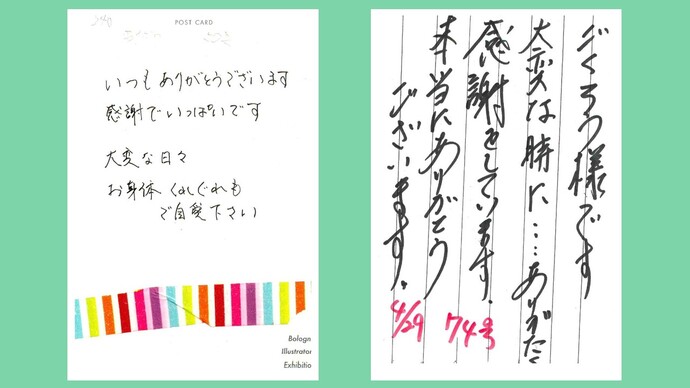 POST CARD
いつもありがとうございます
感謝でいっぱいです
大変な日々
お身体 くれぐれも
ご自愛下さい
Bologn
Illustrator
Exhibitio
ごくろう様です
大変な時に…ありがたく
感謝をしています。
本当にありがとう
ございます。
74号
4/29